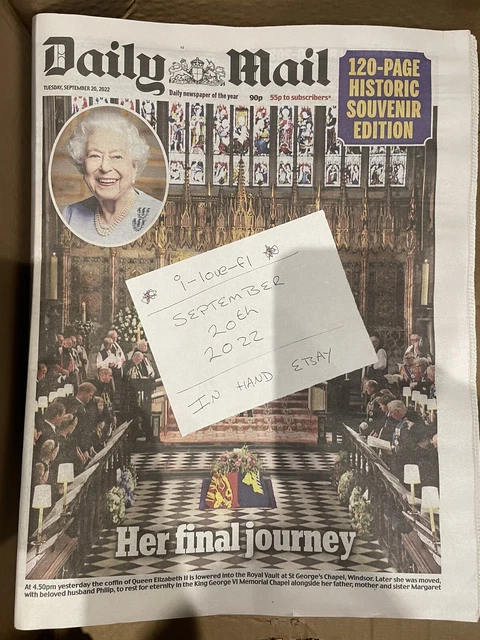 Daily Mail
TUESDAY, SEPTEMBER 20, 2022
Daily newspaper of the year
90p
55p to subscribers*
120-PAGE
HISTORIC
SOUVENIR
EDITION
i-love-f1
SEPTEMBER
20th
2022
IN HAND EBAY
Her final journey
At 4.50pm yesterday the coffin of Queen Elizabeth II is lowered into the Royal Vault at St George's Chapel, Windsor. Later she was moved,
with beloved husband Philip, to rest for eternity in the King George VI Memorial Chapel alongside her father, mother and sister Margaret